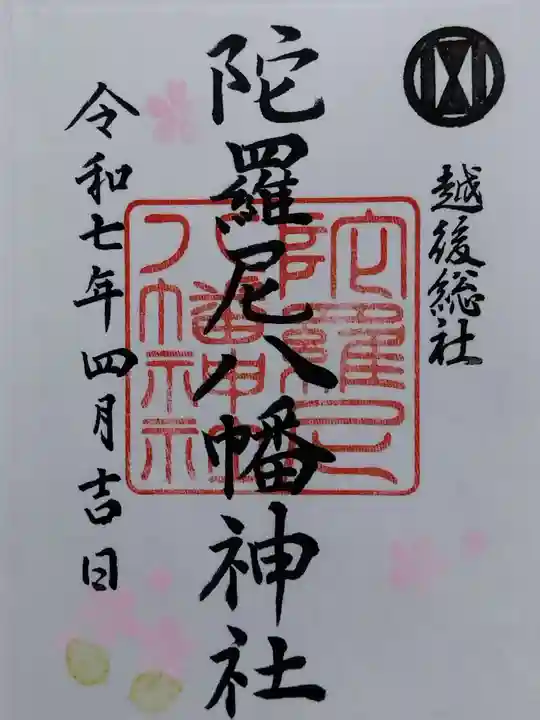 越後総社
陀羅尼八幡神社
令和七年四月吉日
陀羅尼
八幡神社